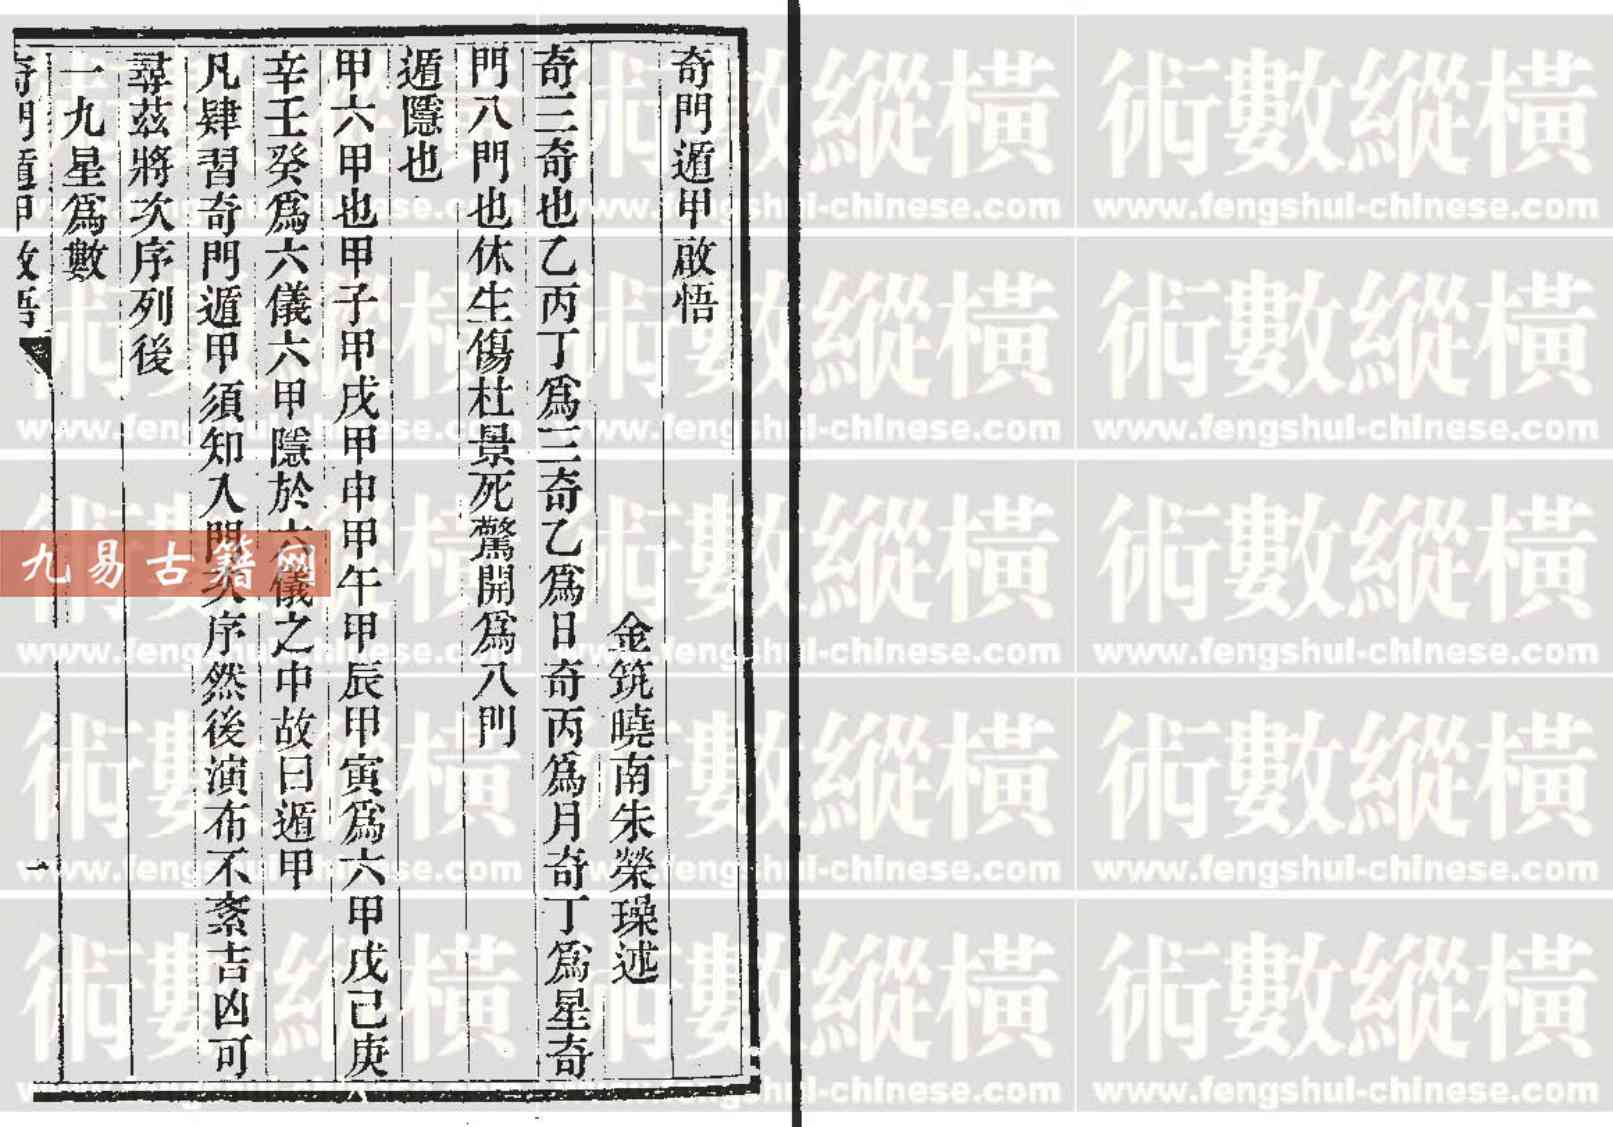 奇門遁甲啟悟
金筑曉南朱榮璪述
奇三奇也乙丙丁爲三奇乙爲日奇丙爲月奇丁爲星奇
門八門也休生傷杜景死驚開爲八門
遁隱也
甲六甲也甲子甲戌甲申甲午甲辰甲寅爲六甲戊己庚
辛壬癸爲六儀六甲隱於六儀之中故曰遁甲
凡肄習奇門遁甲須知入門次序然後演布不紊吉凶可
尋茲將次序列後
一九星爲數
奇門遁甲啟悟
一
九易古籍网
術數縱橫
www.fengshui-chinese.com